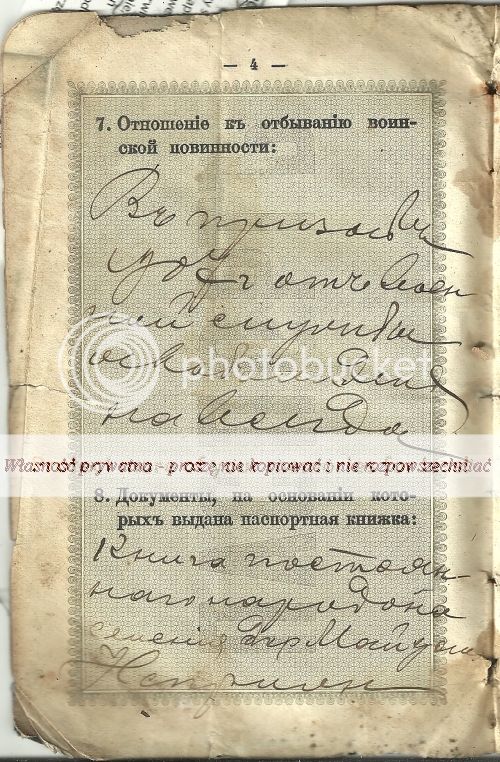 — 4 —
7. Отношеніе къ отбыванію воин-
ской повинности:
Въ призывн
году отъ воен
ной службы
освобожденъ
навсегда
photobucket
Własność prywatna - proszę nie kopiować i nie rozpowszechniać
8. Документы, на основаніи кото-
рыхъ выдана паспортная книжка:
Книга постоян-
наго народона
селенія гр Майдан